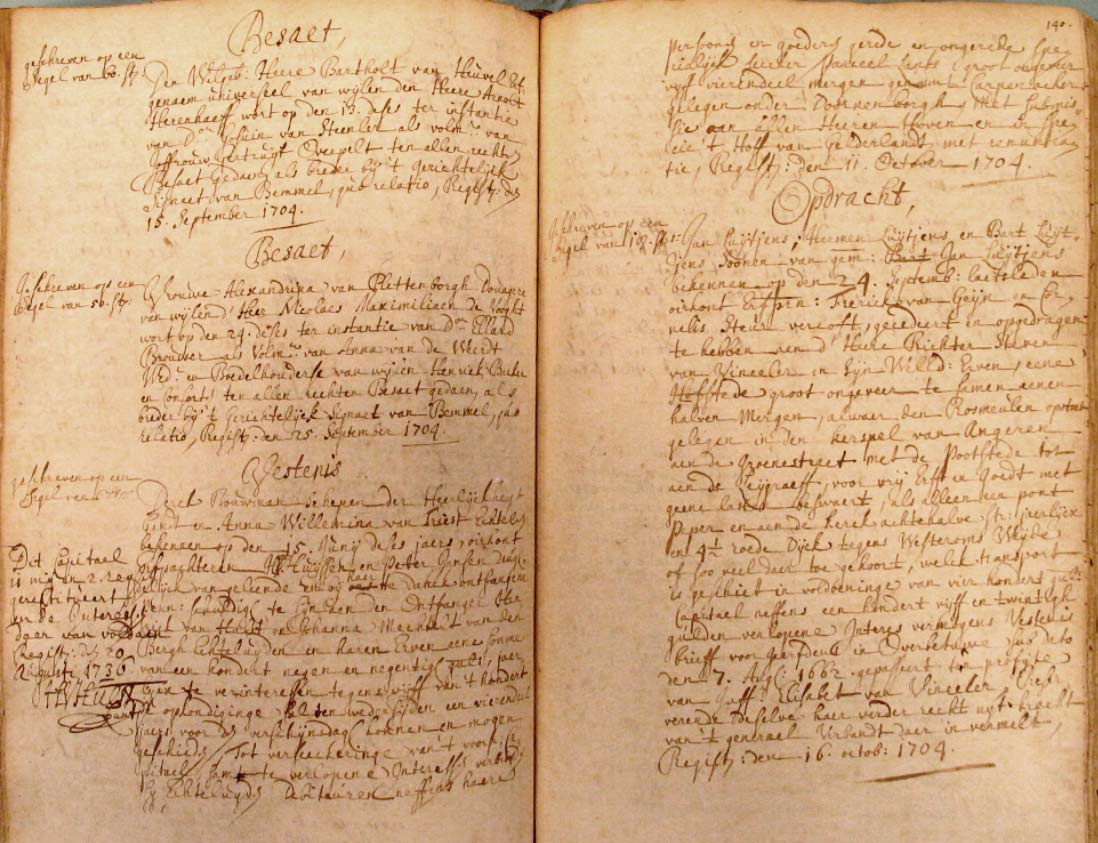 Besaet,
geschreven op een
Segel van 60. st:
Den Welgeb: Heere Bartholt van Heuvel Erf
genaem universeel van wijlen den Heere Arnolt
Heerenhaeff wort op den 13. deses ter instantie
van Dor van Heenler als volmr van
Joffrouw Gertruijt ten allen rechten
Besaet gedaen, als breder bij 't gerichtelijck
Signeet van Bemmel, quo relatio, Regist: den
15. September 1704.
Besaet,
Geschreven op een
Segel van 50. st:
Vrouwe Alexandrina van Plettenborgh Douagre
van wijlen d' Heer Nicolaes Maximiliaen de Voocht
wort op den 24. deses ter instantie van Dor Elland
Brouwer als Volmr van Anna van de Weerdt
Wed: en Boedelhouderse van wijlen Henrick
en Consorts ten allen rechten Besaet gedaen, als
breder bij 't Gerichtelijck Signaet van Bemmel, quo
relatio, Regist: den 25. September 1704.
Vestenis
geschreven op een
Segel van
Bouwman Schepen der Heerlijckheyt
Gendt en Anna Willemina van Triest Echtelui
bekennen op den 15. Junij deses jaers, oirkont
Erfpachteren en Peter Jansen deugh
delijck van geleende en bij haer te danck ontfangene
penn: schuldigh te sijn aen den Ontfanger
van Hulst en Johanna Mechtelt van den
Bergh Echteluyden en haren Erven eene somme
van een hondert negen en negentigh guld: jaer
lijx te verinteressen tegens vijff van 't hondert
de opkondiginge sal ten wedersijden een vierendeel
jaers voor des verschijnsdagh konnen en mogen
geschieden, Tot versekeringe van 't voorst: Ca
pitael, samt te verlopene Interesse verbin
de Echteluyden Debiteuren neffens haere
Dit Capitael
is mij in 2. reijsen
gerestitueert
en de Interesse
daer van voldaen
Regist: den 20
Augusti 1736
HV Hulst
140.
persoons en goeders gerede en ongerede spe
cialijck seecker parceel lants groot ongeveer
vijff vierendeel mergen genaemt
gelegen onder Doornenborgh, Met submis
sie aen allen Heeren Hoven en in spe
cie 't Hoff van Gelderlandt, met renuntia
tie, Regist: den 11. October 1704.
Opdracht,
geschreven op een
Segel van st:
Jan Luijtjens, Hermen Luijtjens en Bart Luijt-
jens Soonen van gem: Bart Jan Luijtjens
bekennen op den 24. Septemb: laetsleden
oirkont Erfpen: Frerick van Geijn en Cor
nelis Steur vercoft, gecedeert en opgedragen
te hebben aen d' Heere Richter Steven
van Vinceler en Sijn WelEd: Erven, eene
Hofstede groot ongeveer te samen eenen
halven Mergen, alwaer den Rosmeulen op staet
gelegen in den kerspel van Angeren
aen de Groenestraet met de Pootstede tot
aen de Zeijgraeff, voor vrij Erff en Goedt met
geene lasten beswaert, als alleen een pont
peper en aen de kerck achtehalve str: jaerlijx
en 4½ roede Dijck tegens Westeroms Weijde
of soo veel daer toe gehoort, welck transport
is geschiet in voldoeninge van vier hondert guld:
Capitael neffens een hondert vijff en twintigh
gulden verlopene Interes vermogens Vestenis
brieff voor gerfdens in Overbetuwe sub dato
den 7. Aug: 1662. gepasseert ten profijte
van Juff: Elisabet van Vinceler Reser
verende deselve haer verder recht uijt kracht
van 't generael verbandt daer in vermelt,
Regist: den 16. octob: 1704.